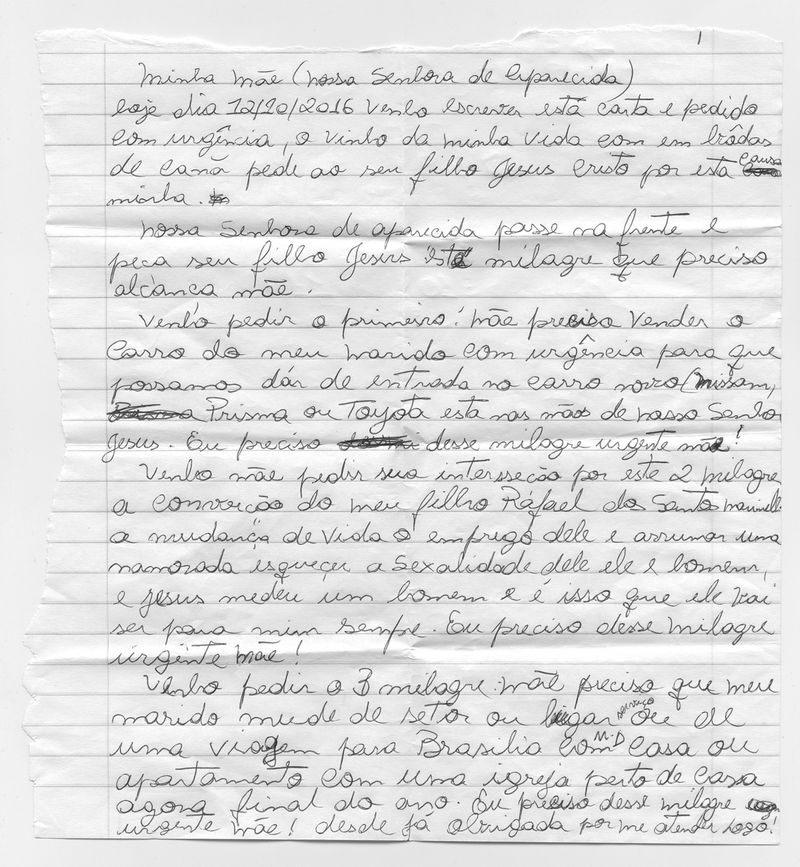 1
Minha mãe (nossa Senhora de Aparecida)
hoje dia 12/10/2016 Venho escrever está carta e pedido
com urgência, o vinho da minha vida com em brôdas
de canã pede ao seu filho Jesus Cristo por esta causa
minha.
Nossa Senhora de aparecida passe na frente e
peça seu filho Jesus está milagre que preciso
alcânca mãe.
Venho pedir o primeiro! Mãe preciso Vender o
Carro do meu marido com urgência para que
possamos dár de entrada no carro novo (Nissam,
Prisma ou Toyota esta nas mãos de nosso Senho
Jesus. Eu preciso desse milagre urgente mãe!
Venho mãe pedir sua intersseção por este 2 milagre
a converção do meu filho Ráfael dos Santo
a mudança de Vida o emprego dele e arrumar uma
namorada esqueçer a Sexalidade dele ele e homem,
e Jesus medeu um homem e é isso que ele Vai
ser para mim sempre. Eu preciso desse milagre
urgente mãe!
Venho pedir o 3 milagre. mãe preciso que meu
marido mude de setor ou lugar serviço ou de
uma viagem para Brasilia com M.D casa ou
apartamento com uma igreja perto de casa
agora final do ano. Eu preciso desse milagre
urgente mãe! desde já obrigada por me atender logo!